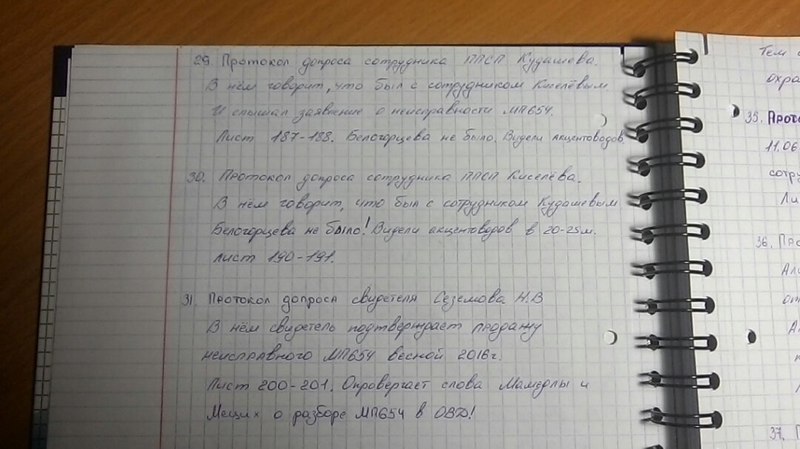 29 Протокол допроса сотрудника ППСП Кудашева.
В нём говорит, что был с сотрудником Киселёвым
И слышал заявление о неисправности МП654.
Лист 187-188. Белогорцева не было. Видели акцентоводов
30. Протокол допроса сотрудника ППСП Киселёва.
В нём говорит, что был с сотрудником Кудашевым
Белогорцева не было! Видели акцентоводов в 20-25м.
Лист 190-191.
31. Протокол допроса свидетеля Сеземова Н.В
В нём свидетель подтверждает продажу
неисправного МП654 весной 2016г.
Лист 200-201. Опровергает слова Мамедлы и
Мещих о разборе МП654 в ОВД!
Тем
охра
35. Прото
11.06
сотру
Ли
36. Про
Ал
от
37. П